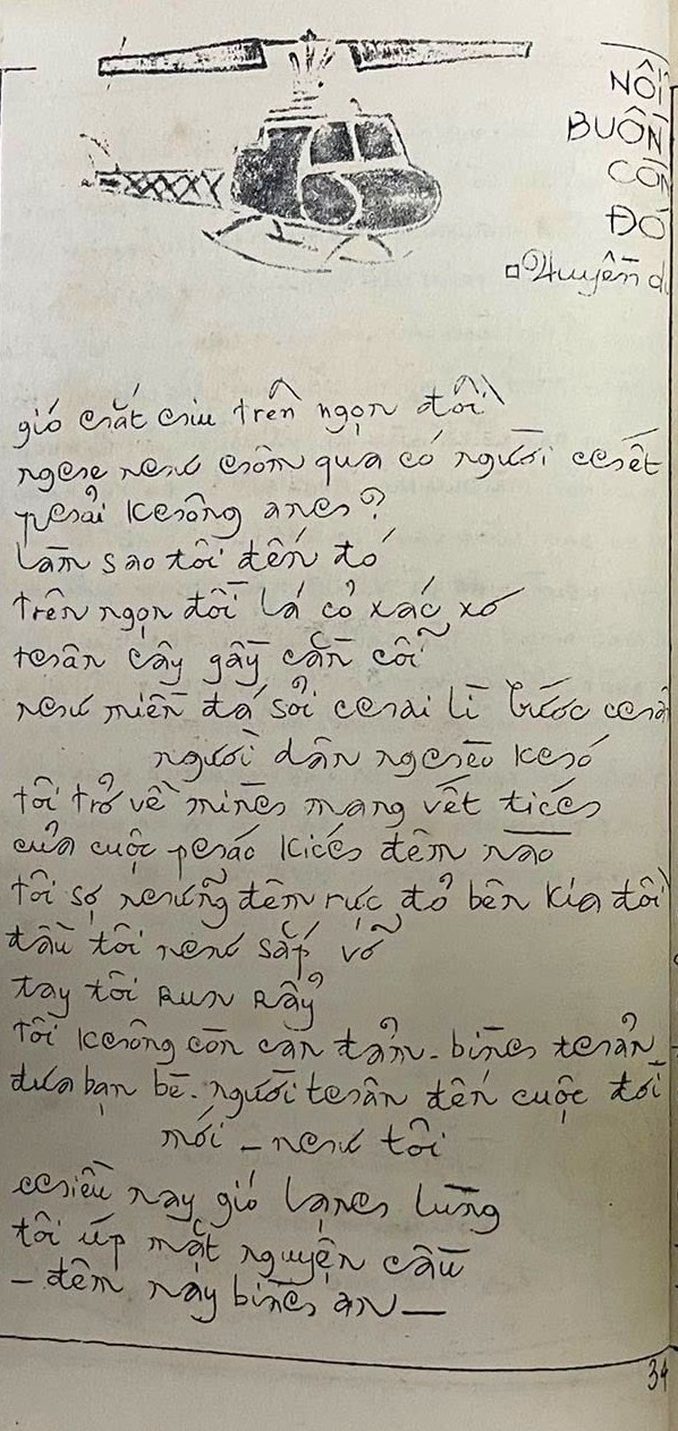 NỖI
BUỒN
CÒN
ĐÓ
Huyền
gió hắt hiu trên ngọn đồi
nghe như hôm qua có người chết
phải không anh?
làm sao tôi đến đó
trên ngọn đồi lá cỏ xác xơ
thân cây gầy cằn cỗi
như miền đá sỏi chai lì bước
người dân nghèo khó
tôi trở về mình mang vết tích
của cuộc pháo kích đêm nào
tôi sợ những đêm rực đỏ bên kia đồi
đầu tôi như sắp vỡ
tay tôi RUN RẨY
tôi không còn can đảm - bình thản
đưa bạn bè - người thân đến cuộc đời
mới - như tôi
chiều nay gió lạnh lùng
tôi úp mặt nguyện cầu
- đêm này bình an -
34